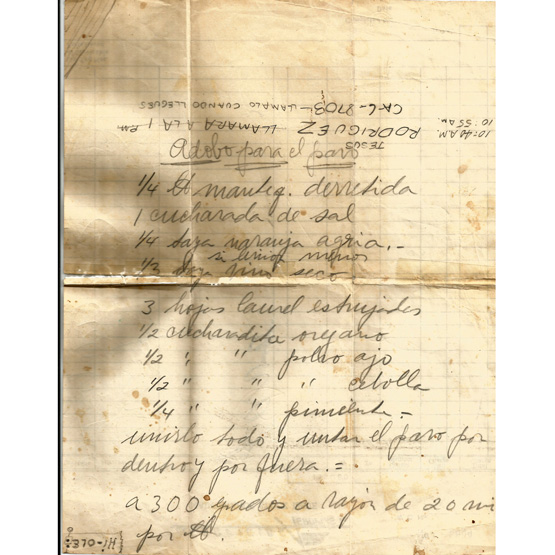 10:40 A.M.
10:55 A.M.
CA6-8703 - LLAMALO CUANDO LLEGUES
JESUS
RODRIGUEZ LLAMARA A LA 1 P.M.
Adobo para el pavo
1/4 lb manteq. derretida
1 cucharada de sal
1/4 taza naranja agria.-
si limón menos
1/3 taza vino seco
3 hojas laurel estrujadas
1/2 cucharadita oregano
1/2 " " polvo ajo
1/2 " " " cebolla
1/4 " " pimienta -
unirlo todo y untar el pavo por
dentro y por fuera. =
a 300 grados a razón de 20 mi
por lb.
HI-OLE: